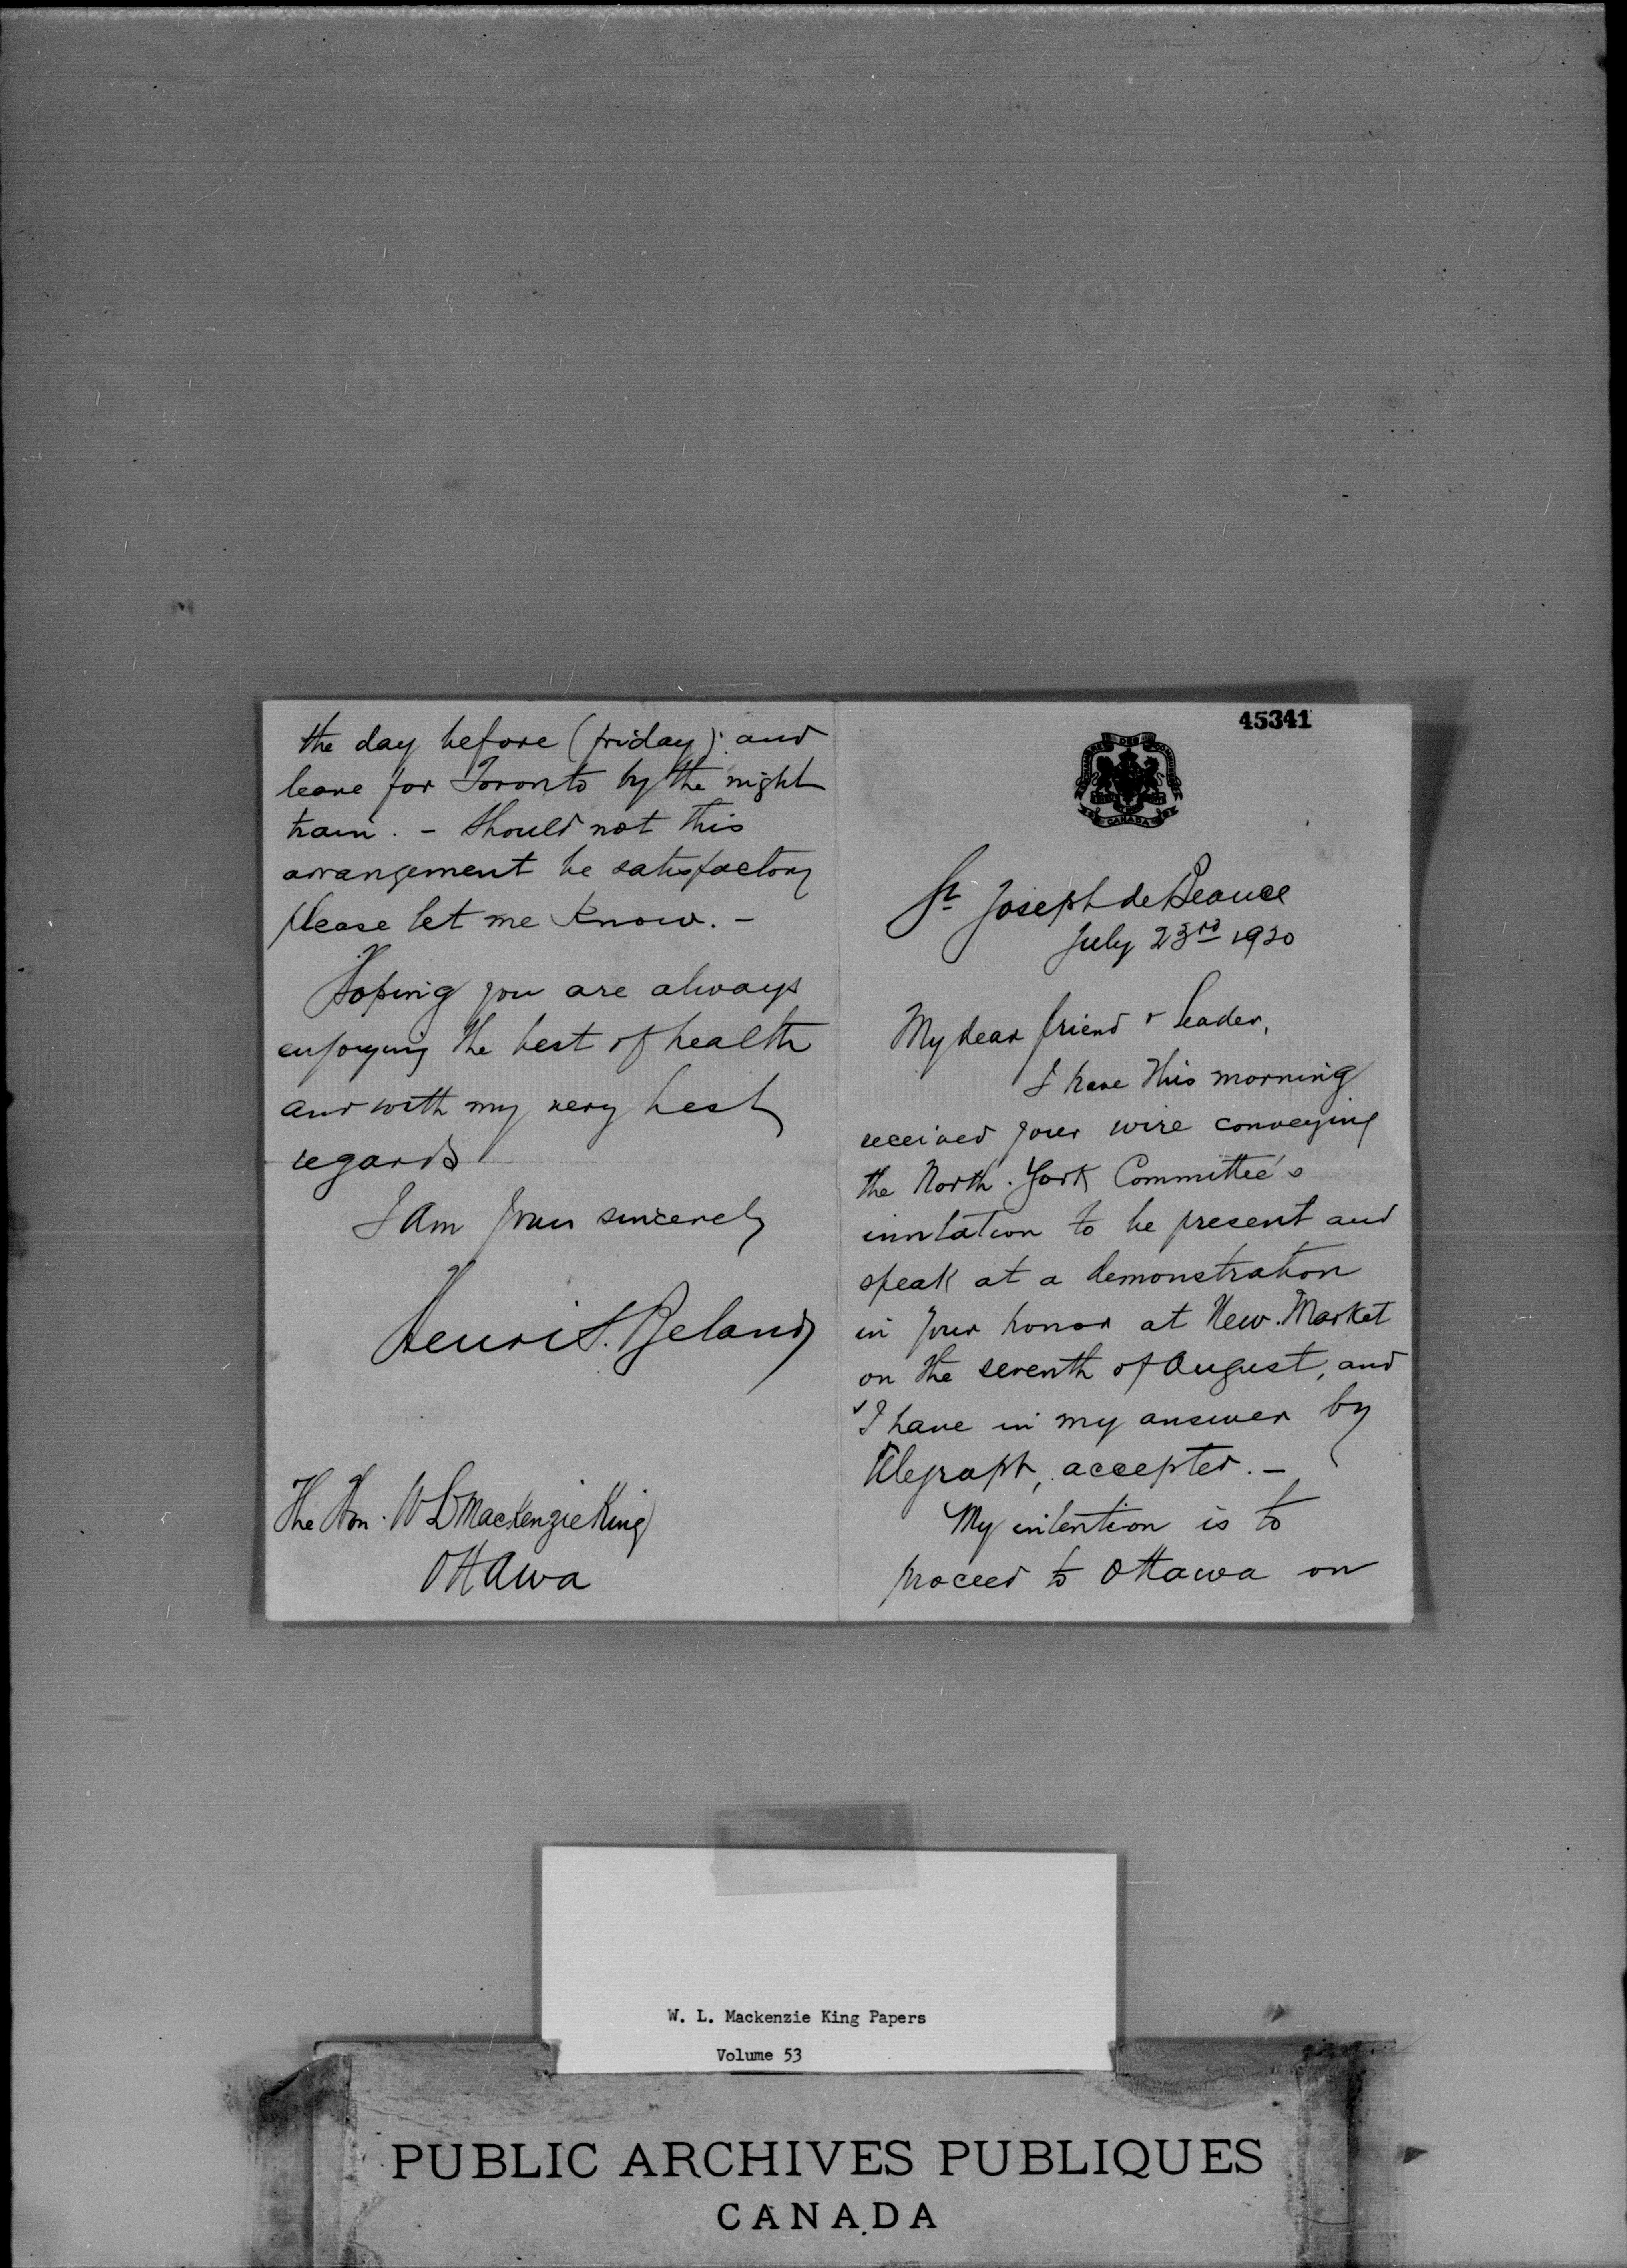 45341
CHAMBRE DES COMMUNES
CANADA
St Joseph de Beauce
July 23rd 1920
My dear friend & leader,
I have this morning
received your wire conveying
the North. York Committee's
invitation to be present and
speak at a demonstration
in your honor at New. Market
on the seventh of August, and
I have in my answer by
telegraph, accepted. –
My intention is to
proceed to Ottawa on
the day before (friday) and
leave for Toronto by the night
train. – Should not this
arrangement be satisfactory
please let me know. –
Hoping you are always
enjoying the best of health
and with my very best
regards
I am yours sincerely
Henri S. Beland
The Hon. W L Mackenzie King
Ottawa
W. L. Mackenzie King Papers
Volume 53
PUBLIC ARCHIVES PUBLIQUES
CANADA